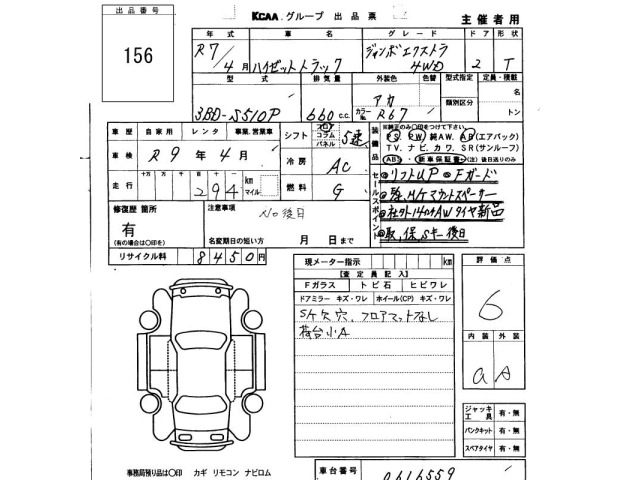 出品番号
156
KCAA グループ 出品票
主催者用
年式 車名 グレード ドア 形状
R7/4月 ハイゼットトラック ジャンボエクストラ 4WD 2 T
型式 排気量 外装色 色替 型式指定 定員・積載
類別区分
名
トン
3BD-S510P 660 c.c. アカ カラーNo. R67
車歴 自家用 レンタ 事業、営業車
車検 R9年4月
走行 十万 万 千 百 十 一
294 km マイル
修復歴 箇所
有
(有の場合は〇印を)
注意事項
No後日
名変期日の短い方 月 日まで
リサイクル料 8450円
シフト コラム パネル 5速
冷房 AC
燃料 G
装備品
※純正のみ〇印をつけて下さい。
PS PW 純AW. AB(エアバック)
TV. ナビ. カワ. SR(サンルーフ)
ABS 新車保証書 (注)後日送りのみ
セールスポイント
◎リフトUP ◎Fガード
◎社外14インチAWタイヤ新品
◎取、保、Sキー後日
現メーター指示 km
【査定員記入】
Fガラス トビ石 ヒビワレ
ドアミラー キズ・ワレ ホイール(CP) キズ・ワレ
S/ケ欠穴、フロアマットなし
荷台小A
評価点
6
内装 外装
a A
ジャッキ工具 有・無
パンクキット 有・無
スペアタイヤ 有・無
事務局預り品は〇印 カギ リモコン ナビロム
車台番号 0616559